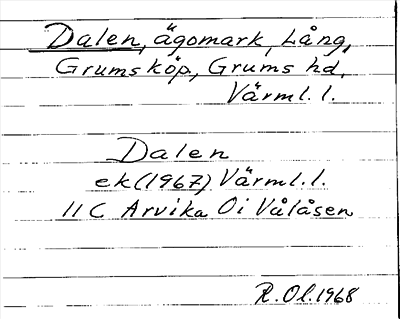 Dalen, ägomark, Lång,
Grums köp., Grums hd,
Värml. l.
Dalen
ek (1967) Värml. l.
11 C Arvika Oi Vålåsen
R. Ol. 1968